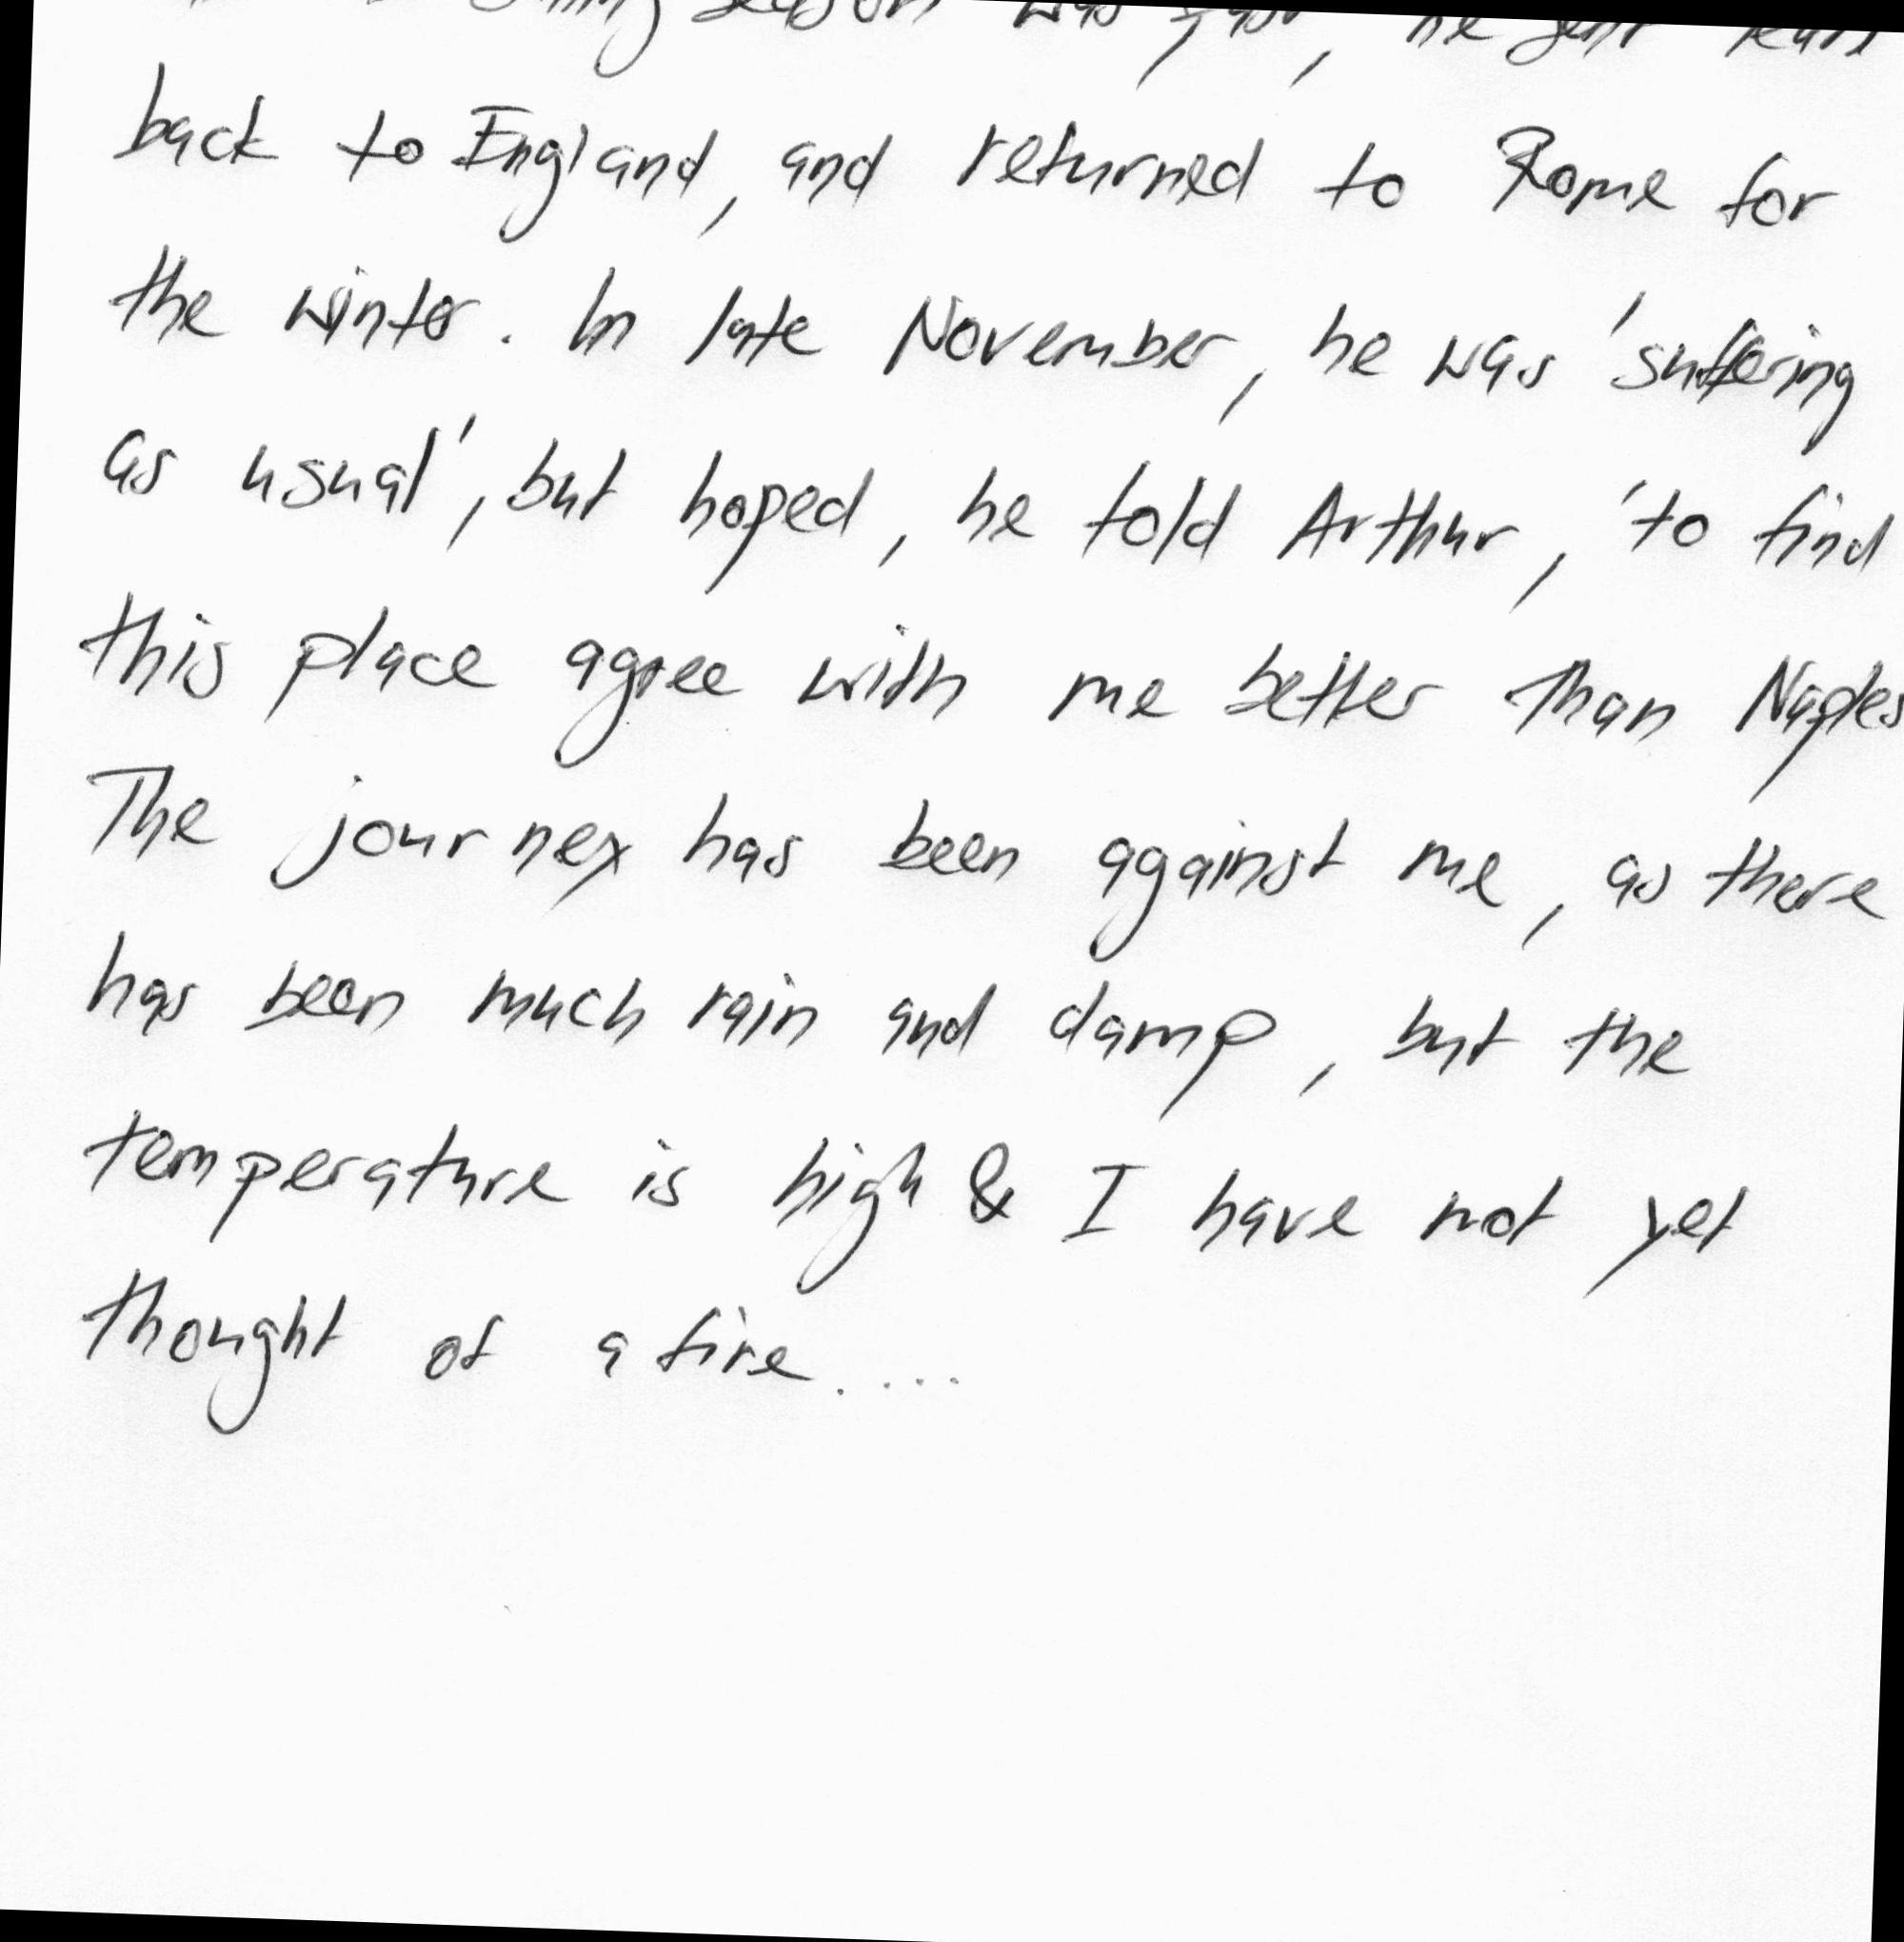 season was past, he sent
back to England, and returned to Rome for
the winter. In late November, he was 'suffering
as usual', but hoped, he told Arthur, 'to find
this place agree with me better than Naples
The journey has been against me, as there
has been much rain and damp, but the
temperature is high & I have not yet
thought of a fire....